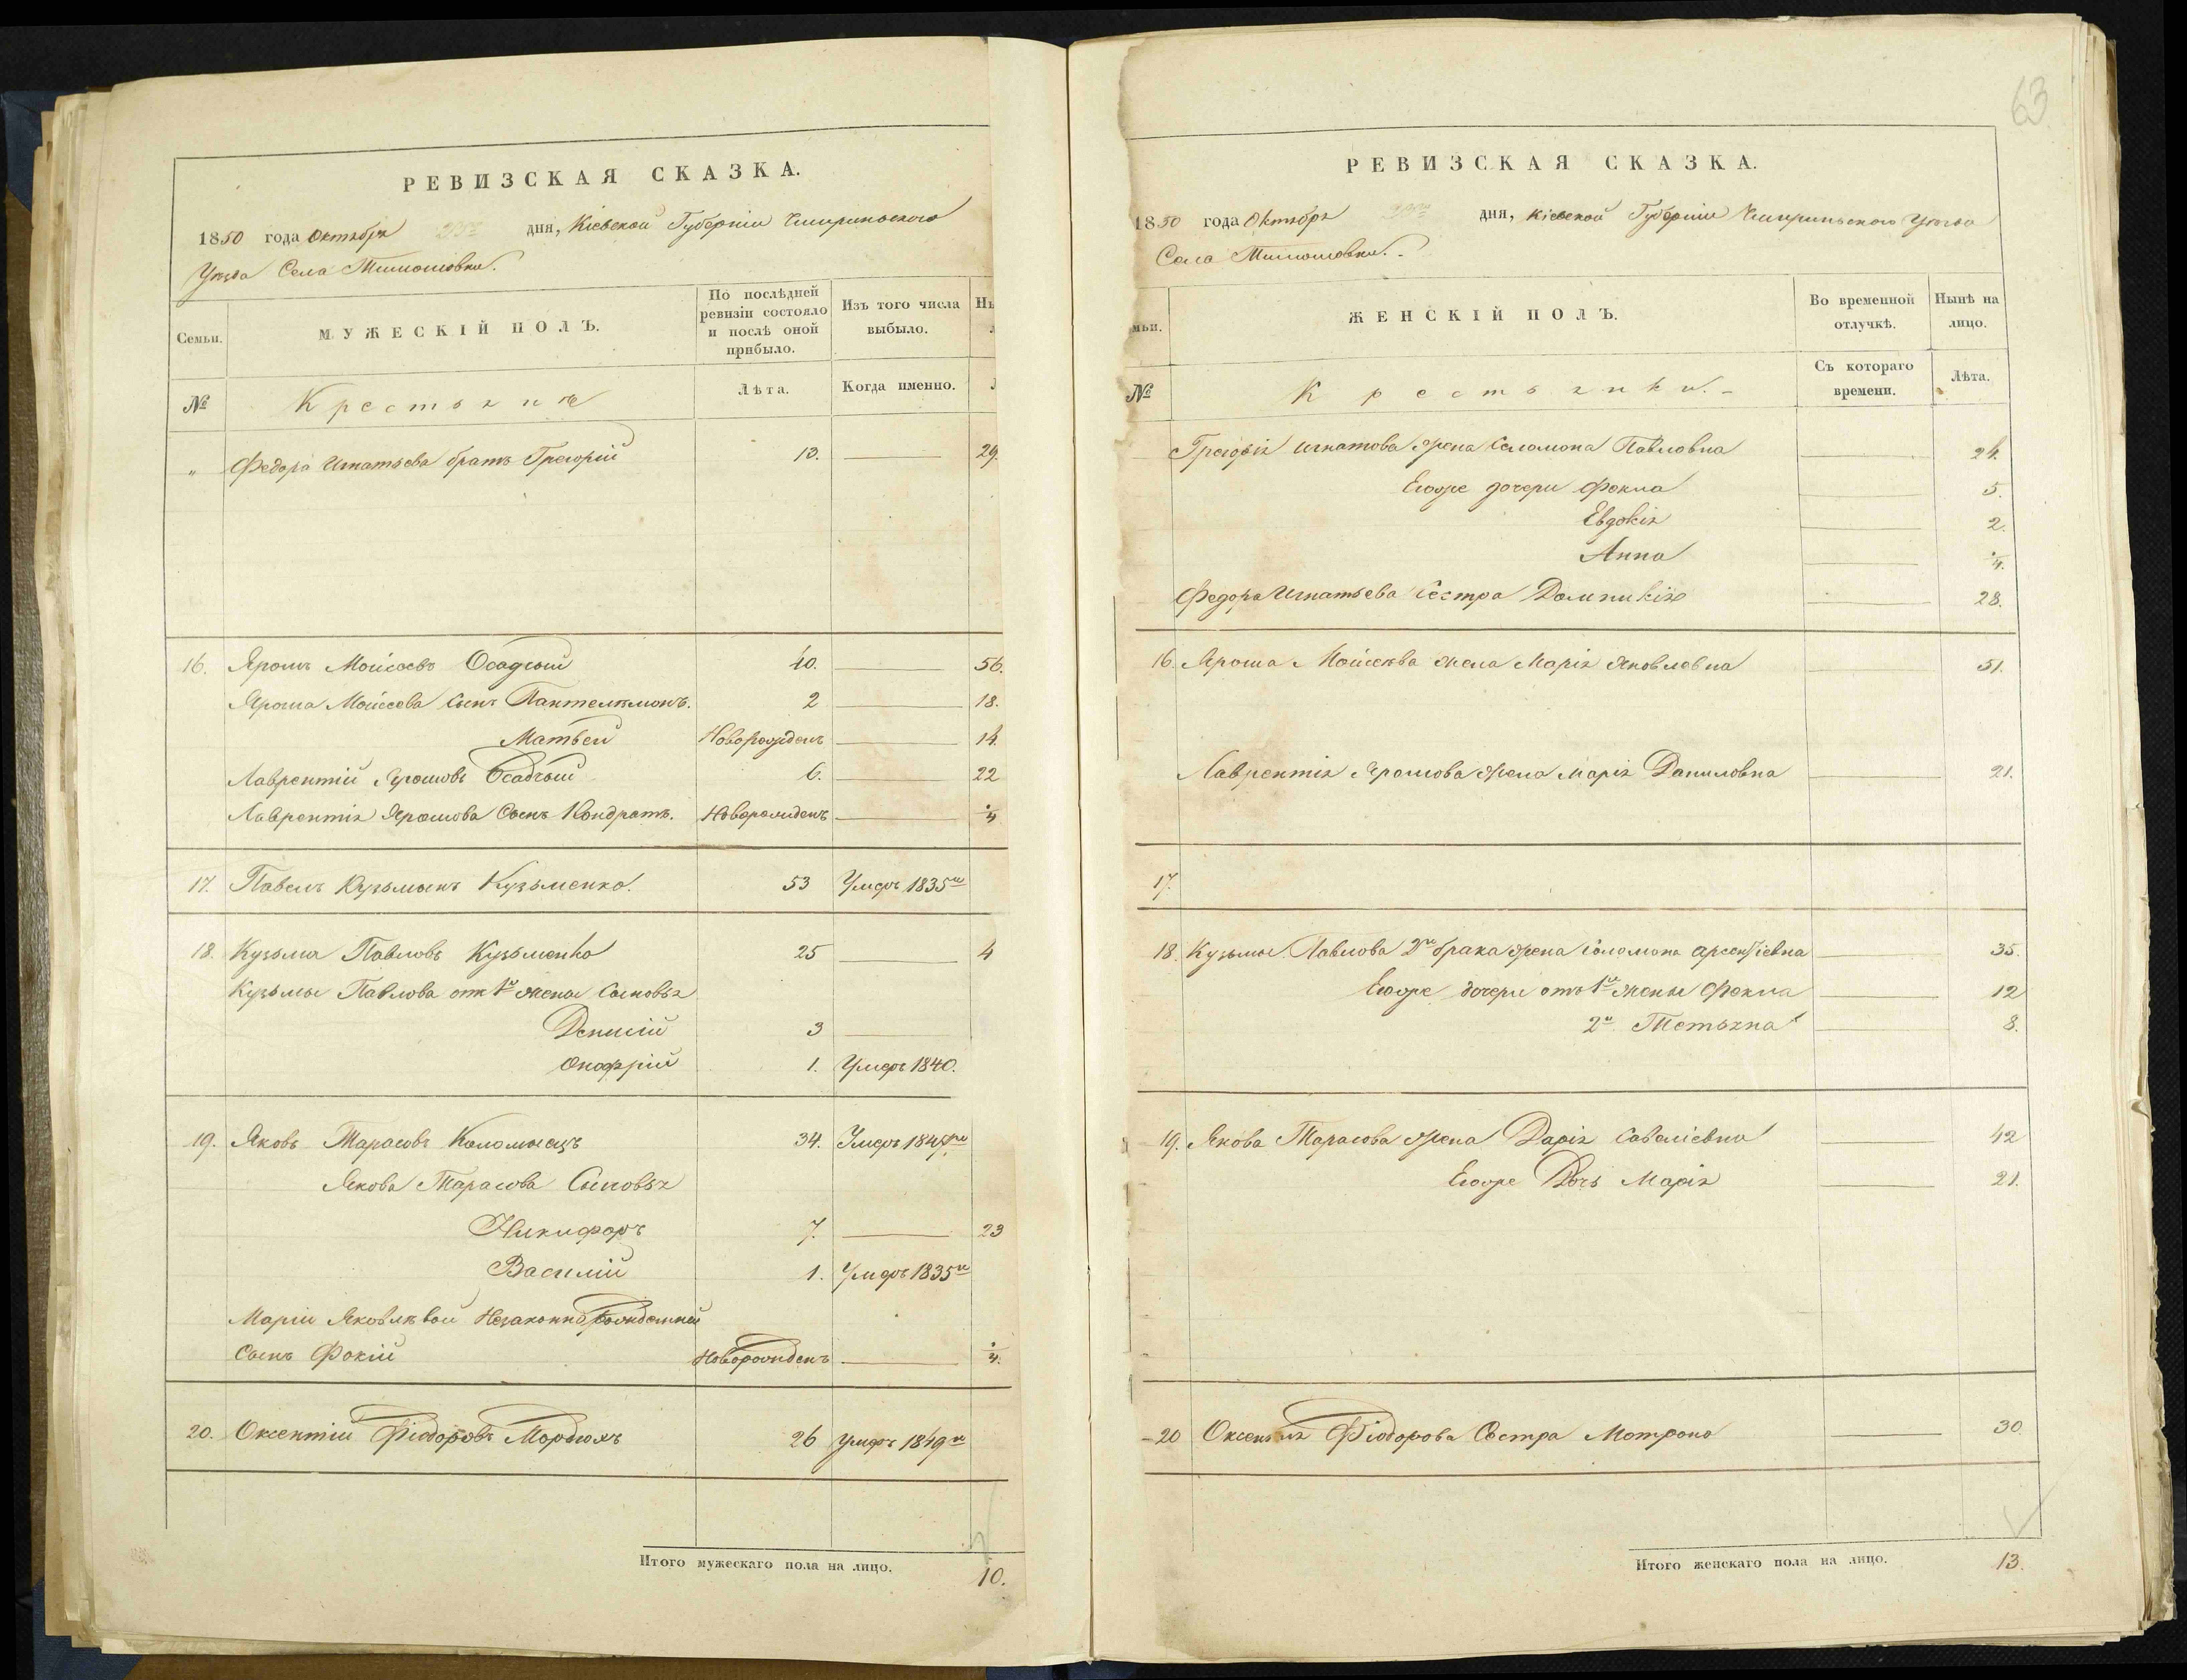 РЕВИЗСКАЯ СКАЗКА.
1850 года Октября дня, Кіевской Губерніи Чигиринского
Уезда Села Тимошовки.
Семьи.
МУЖЕСКІЙ ПОЛЪ.
По послѣдней ревизіи состояло и послѣ оной прибыло.
Изъ того числа выбыло.
№
Крестьяне
Лѣта.
Когда именно.
" Федора Игнатьева братъ Грегорій 13. 29.
16. Ярошъ Моисеевъ Осадчий 40. 56.
Яроша Моисеева Сынъ Пантелемонъ. 2 18.
Матвей Новорожденъ 14.
Лаврентий Ярошовъ Осадчий 6. 22
Лаврентія Ярошова Сынъ Кондратъ. Новорожденъ ¼
17. Павелъ Кузьминъ Кузьменко. 53 Умеръ 1835го
18. Кузьма Павловъ Кузьменко 25 4
Кузьмы Павлова отъ 1й жены Сыновья
Денисій 3
Онофрій 1. Умеръ 1840.
19. Яковъ Тарасовъ Коломыецъ 34. Умеръ
Якова Тарасова Сыновья
Никифоръ 7. 23
Василій 1. Умеръ 1835го
Маріи Яковлевой Незаконнорожденный
Сынъ Фокій Новорожденъ ¼.
20. Оксентій Фіодоровъ Мордюкъ 26 Умеръ 1849го
Итого мужескаго пола на лицо. 10.
63
РЕВИЗСКАЯ СКАЗКА.
1850 года Октября дня, Кіевской Губерніи Чигиринского Уезда
Села Тимошовки.
ЖЕНСКІЙ ПОЛЪ.
Во временной отлучкѣ.
Нынѣ на лицо.
№
Крестьянки.
Съ котораго времени.
Лѣта.
Грегорія Игнатова Жена Соломона Павловна 24.
Егоже дочери Фекла 5.
Евдокія 2.
Анна ¼.
Федора Игнатьева Сестра Домникія 28.
16. Яроша Моисеева жена Марія Яковлевна 51.
Лаврентія Ярошова Жена Марія Даниловна 21.
17.
18. Кузьмы Павлова 2го брака Жена Соломона Арсентіевна 35.
Егоже дочери отъ 1й жены Фекла 12
2й Тетьяна 8.
19. Якова Тарасова Жена Дарія Савеліевна 42
Егоже Дочь Марія 21.
20 Оксентія Фіодорова Сестра Мотрона 30
Итого женскаго пола на лицо. 13.